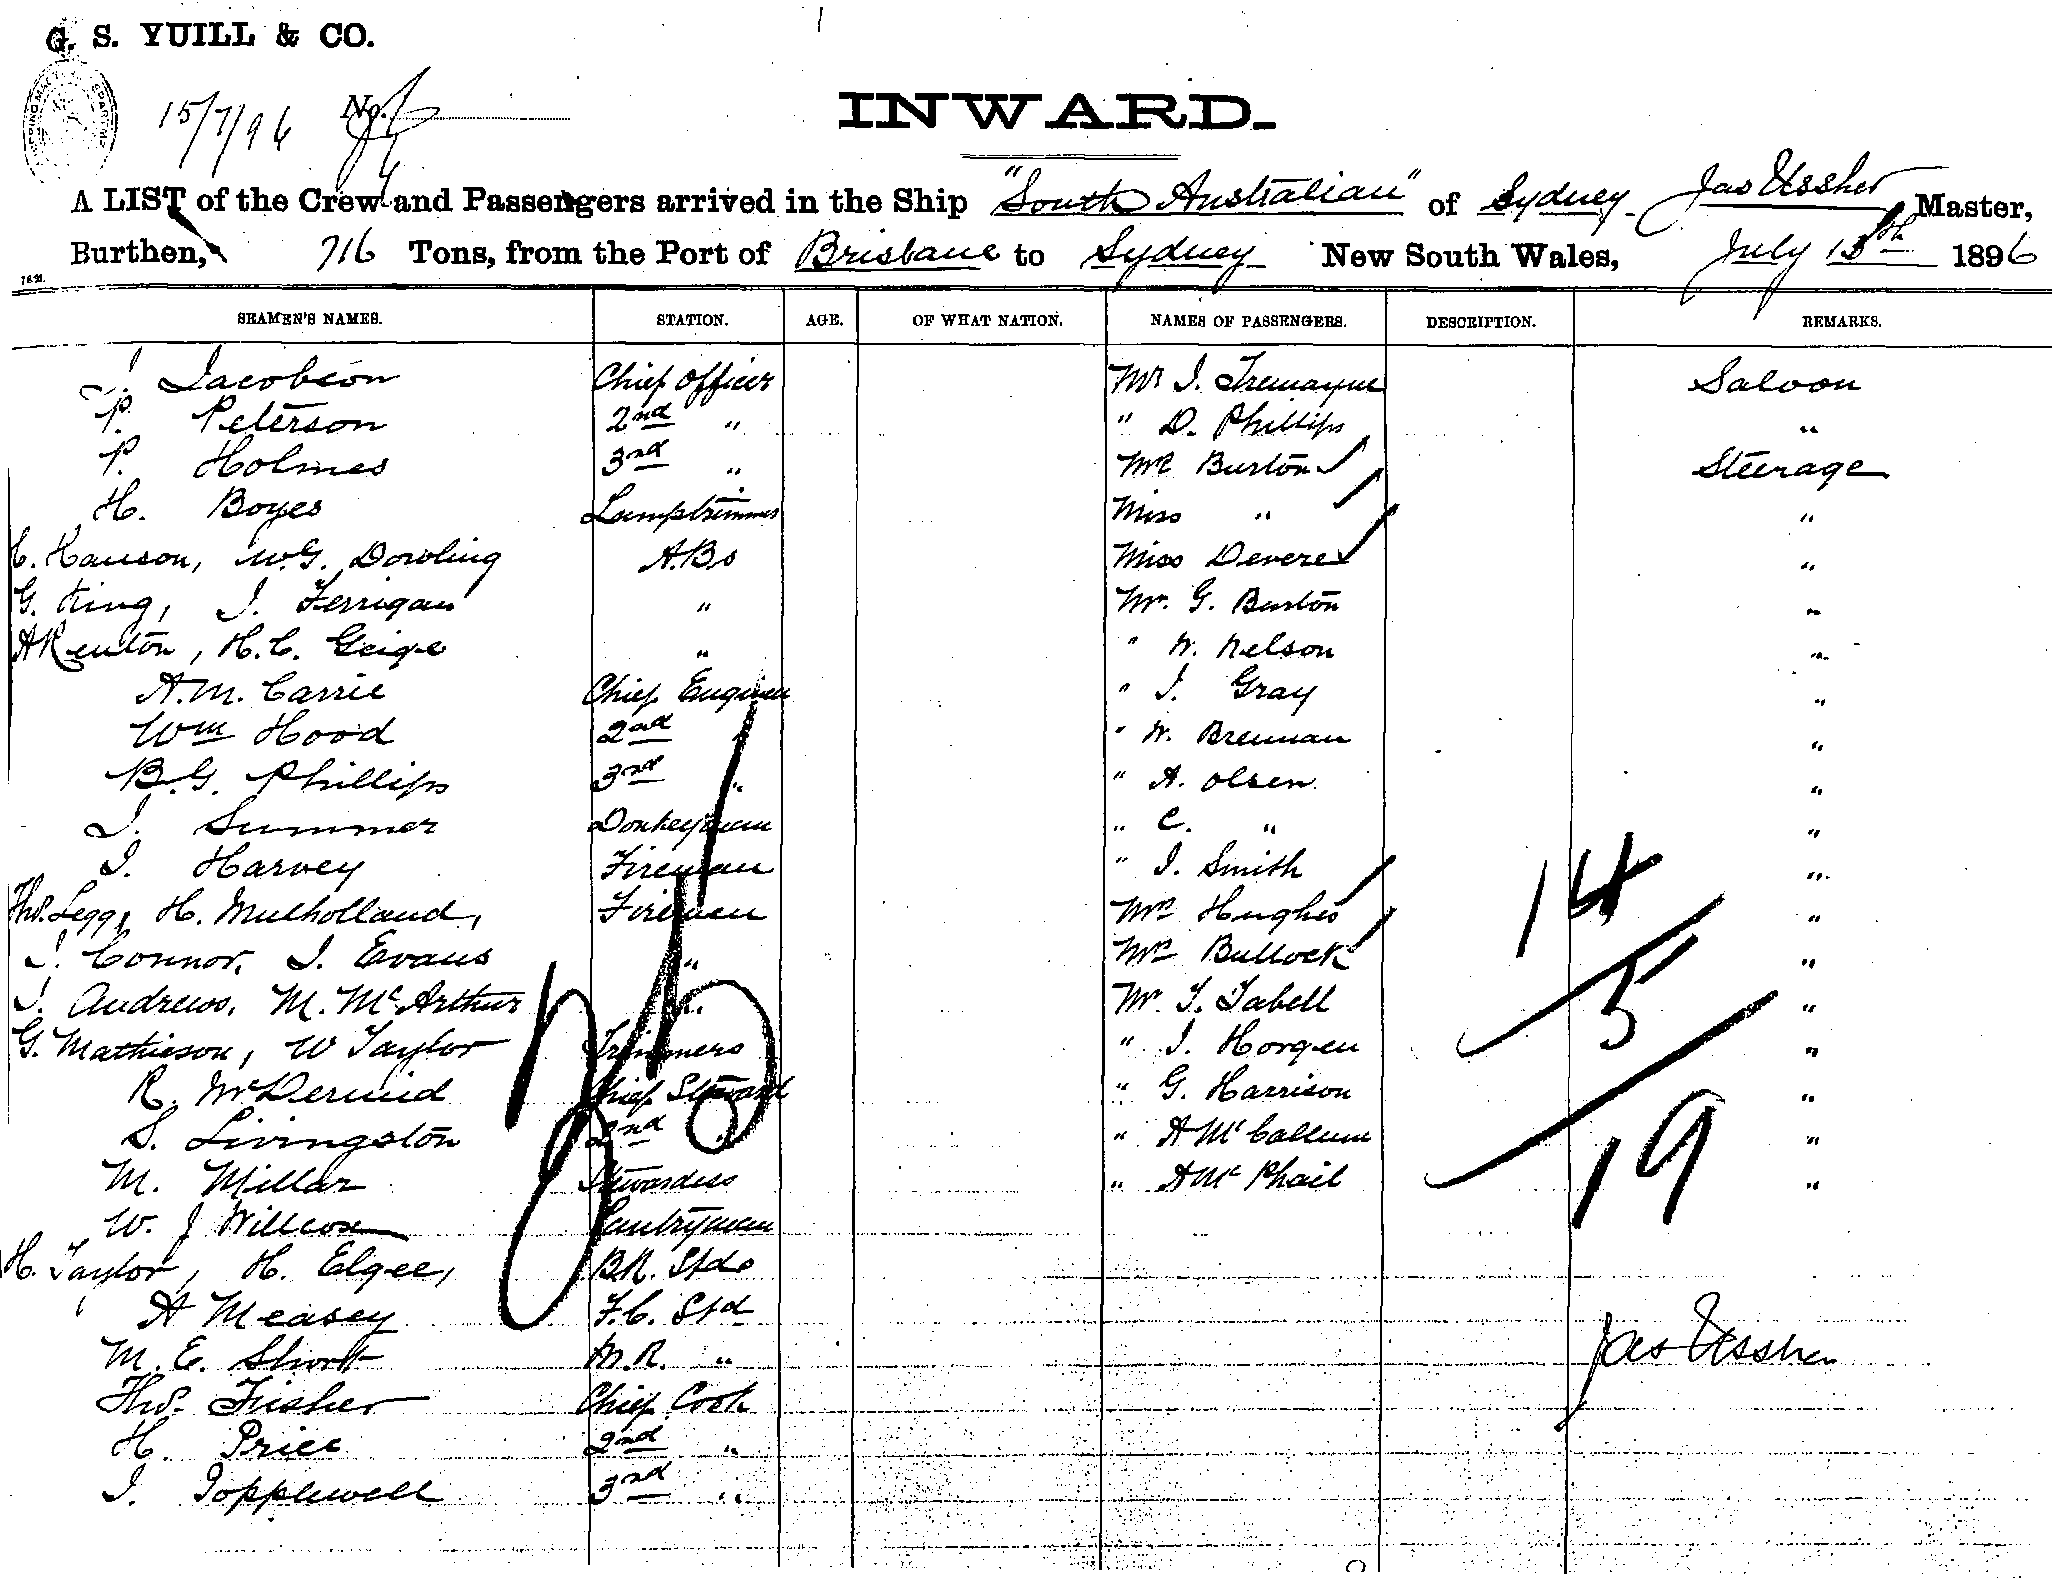 G. S. YUILL & CO.
15/7/96 No.
INWARD.
A LIST of the Crew and Passengers arrived in the Ship "South Australian" of Sydney Jas Ussher Master,
Burthen, 716 Tons, from the Port of Brisbane to Sydney New South Wales, July 15th 1896
SEAMEN'S NAMES. STATION. AGE. OF WHAT NATION. NAMES OF PASSENGERS. DESCRIPTION. REMARKS.
J. Jacobson Chief Officer Mr J. Tremayne Saloon
P. Peterson 2nd " " D. Phillips "
P. Holmes 3rd " Mrs Burton Steerage
H. Boyes Lamptrimmer Miss " "
C. Hanson, W.G. Dowling A.Bs Miss Devere "
G. King, J. Ferrigan " Mr. G. Burton "
A Renton, H.C. Geige " " W. Nelson "
A.M. Carrie Chief Engineer " J. Gray "
Wm Hood 2nd " " W. Brennan "
B.G. Phillips 3rd " " A. Olsen "
J. Summer Donkeyman " C. " "
J. Harvey Fireman " J. Smith "
Thos. Legg, H. Mulholland, Firemen Mrs Hughes 14 "
J. Connor, J. Evans " Mrs Bullock "
J. Andrews, M. McArthur " Mr. T. Tabell 5 "
G. Mathieson, W Taylor Trimmers " J. Horgen "
R. McDermid Chief Steward " G. Harrison "
S. Livingston 2nd " " A McCallum 19 "
M. Millar Stewardess " A McPhail "
W. J Willcox Pantryman
H. Taylor, H. Elgee, B.R. Stds
A Measey F.C. Std
M. E. Short M.R. " Jas Ussher
Thos. Fisher Chief Cook
H. Price 2nd "
J. Popplewell 3rd "